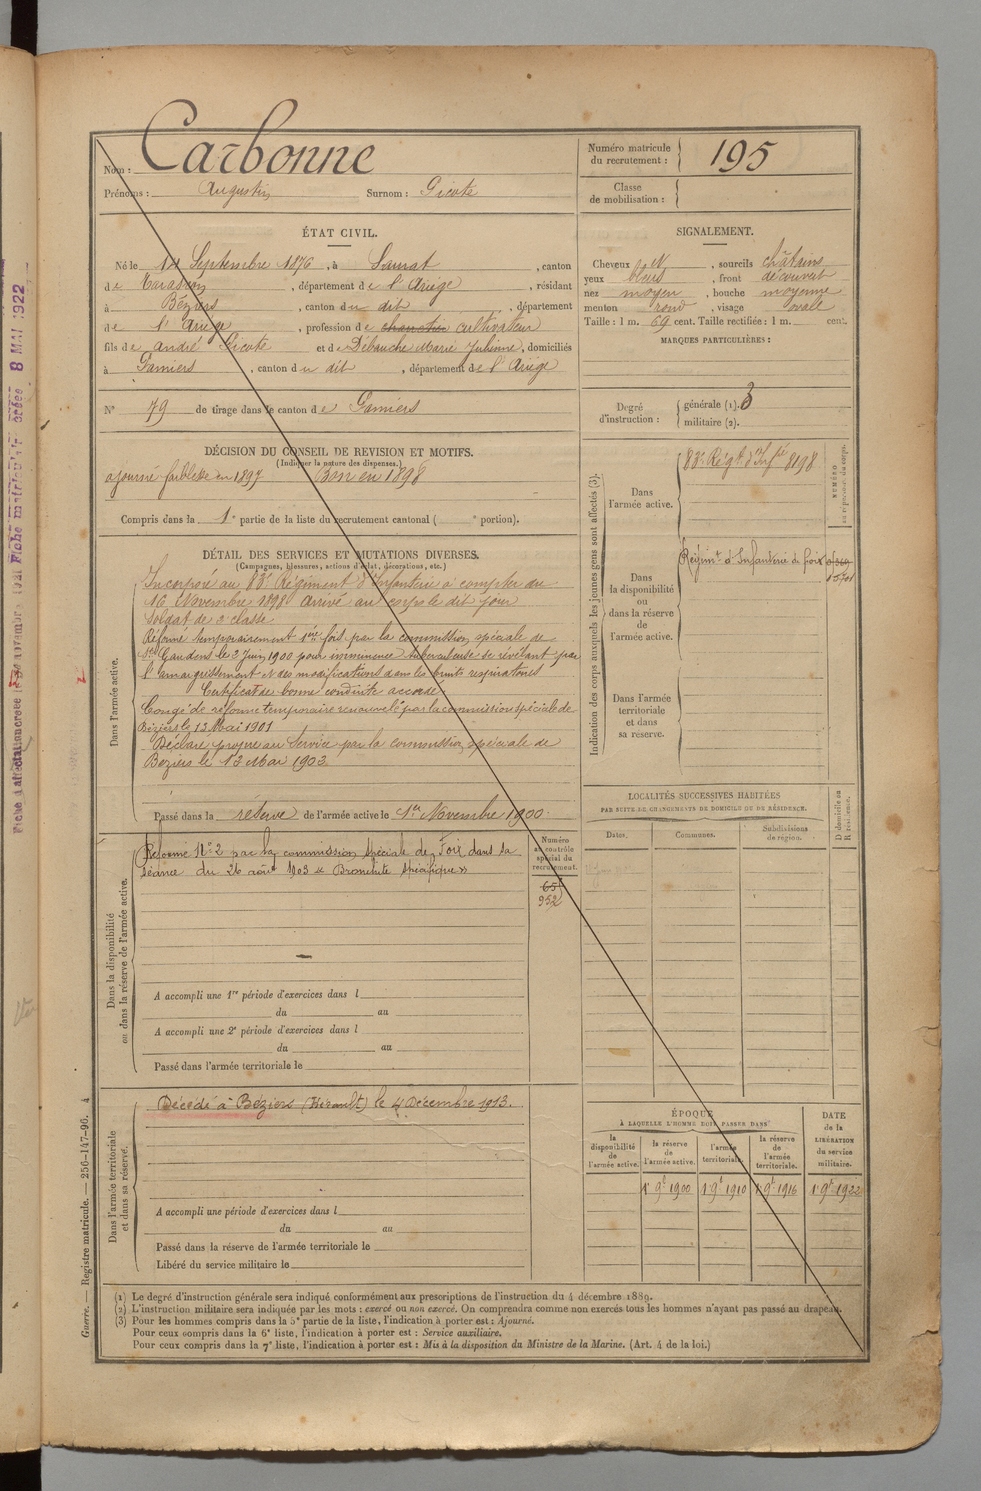 Nom : Carbonne
Prénoms : Augustin Surnom : Picote
Numéro matricule du recrutement : 195
Classe de mobilisation :
ÉTAT CIVIL.
Né le 14 Septembre 1876, à Saurat, canton
de Tarascon, département de l'Ariège, résidant
à Béziers, canton du dit, département
de l'Ariège, profession de cultivateur
fils de André Picote et de Débauche Marie Julienne, domiciliés
à Pamiers, canton du dit, département de l'Ariège
N° 79 de tirage dans le canton de Pamiers
SIGNALEMENT.
Cheveux , sourcils châtains
yeux bleus, front découvert
nez moyen, bouche moyenne
menton rond, visage ovale
Taille : 1 m. 69 cent. Taille rectifiée : 1 m. cent.
MARQUES PARTICULIÈRES :
Degré d'instruction : générale (1). 3
militaire (2).
DÉCISION DU CONSEIL DE REVISION ET MOTIFS.
(Indiquer la nature des dispenses.)
ajourné faiblesse en 1897 Bon en 1898
Compris dans la 1e partie de la liste du recrutement cantonal ( e portion).
DÉTAIL DES SERVICES ET MUTATIONS DIVERSES.
(Campagnes, blessures, actions d'éclat, décorations, etc.)
Dans l'armée active.
Incorporé au 83e Régiment d'Infanterie à compter du
16 Novembre 1898 arrivé au corps le dit jour
Soldat de 2e classe
Réformé temporairement 1ère fois par la commission spéciale de
St Gaudens le 2 Juin 1900 pour imminence tuberculeuse se révélant par
l'amaigrissement et des modifications dans les bruits respiratoires
Certificat de bonne conduite accordé.
Congé de réforme temporaire renouvelé par la commission spéciale de
Béziers le 13 Mai 1901
Déclaré propre au Service par la commission spéciale de
Béziers le 13 Mai 1902
Passé dans la réserve de l'armée active le 1er Novembre 1900.
Indication des corps auxquels les jeunes gens sont affectés (3).
NUMÉRO au répertoire du corps.
Dans l'armée active.
83e Régt d'Infie 8198
Dans la disponibilité ou dans la réserve de l'armée active.
Régimt d'Infanterie de foix
Dans l'armée territoriale et dans sa réserve.
LOCALITÉS SUCCESSIVES HABITÉES
PAR SUITE DE CHANGEMENTS DE DOMICILE OU DE RÉSIDENCE.
Dates. Communes. Subdivisions de région. D domicile ou R résidence.
Dans la disponibilité ou dans la réserve de l'armée active.
Réformé N° 2 par la commission spéciale de Foix dans sa
séance du 26 août 1903 « Bronchite spécifique »
Numéro au contrôle spécial du recrutement.
651
952
A accompli une 1re période d'exercices dans l
du au
A accompli une 2e période d'exercices dans l
du au
Passé dans l'armée territoriale le
Dans l'armée territoriale et dans sa réserve.
Décédé à Béziers (Hérault) le 4 Décembre 1913.
A accompli une période d'exercices dans l
du au
Passé dans la réserve de l'armée territoriale le
Libéré du service militaire le
ÉPOQUE
À LAQUELLE L'HOMME DOIT PASSER DANS
la disponibilité de l'armée active.
la réserve de l'armée active.
l'armée territoriale.
la réserve de l'armée territoriale.
DATE de la LIBÉRATION du service militaire.
1r 9bre 1900 1r 9bre 1910 1r 9bre 1916 1r 9bre 1922
(1) Le degré d'instruction générale sera indiqué conformément aux prescriptions de l'instruction du 4 décembre 1889.
(2) L'instruction militaire sera indiquée par les mots : exercé ou non exercé. On comprendra comme non exercés tous les hommes n'ayant pas passé au drapeau.
(3) Pour les hommes compris dans la 5e partie de la liste, l'indication à porter est : Ajourné.
Pour ceux compris dans la 6e liste, l'indication à porter est : Service auxiliaire.
Pour ceux compris dans la 7e liste, l'indication à porter est : Mis à la disposition du Ministre de la Marine. (Art. 4 de la loi.)
Guerre. — Registre matricule. — 256-147-96. 4
8 MAI 1922